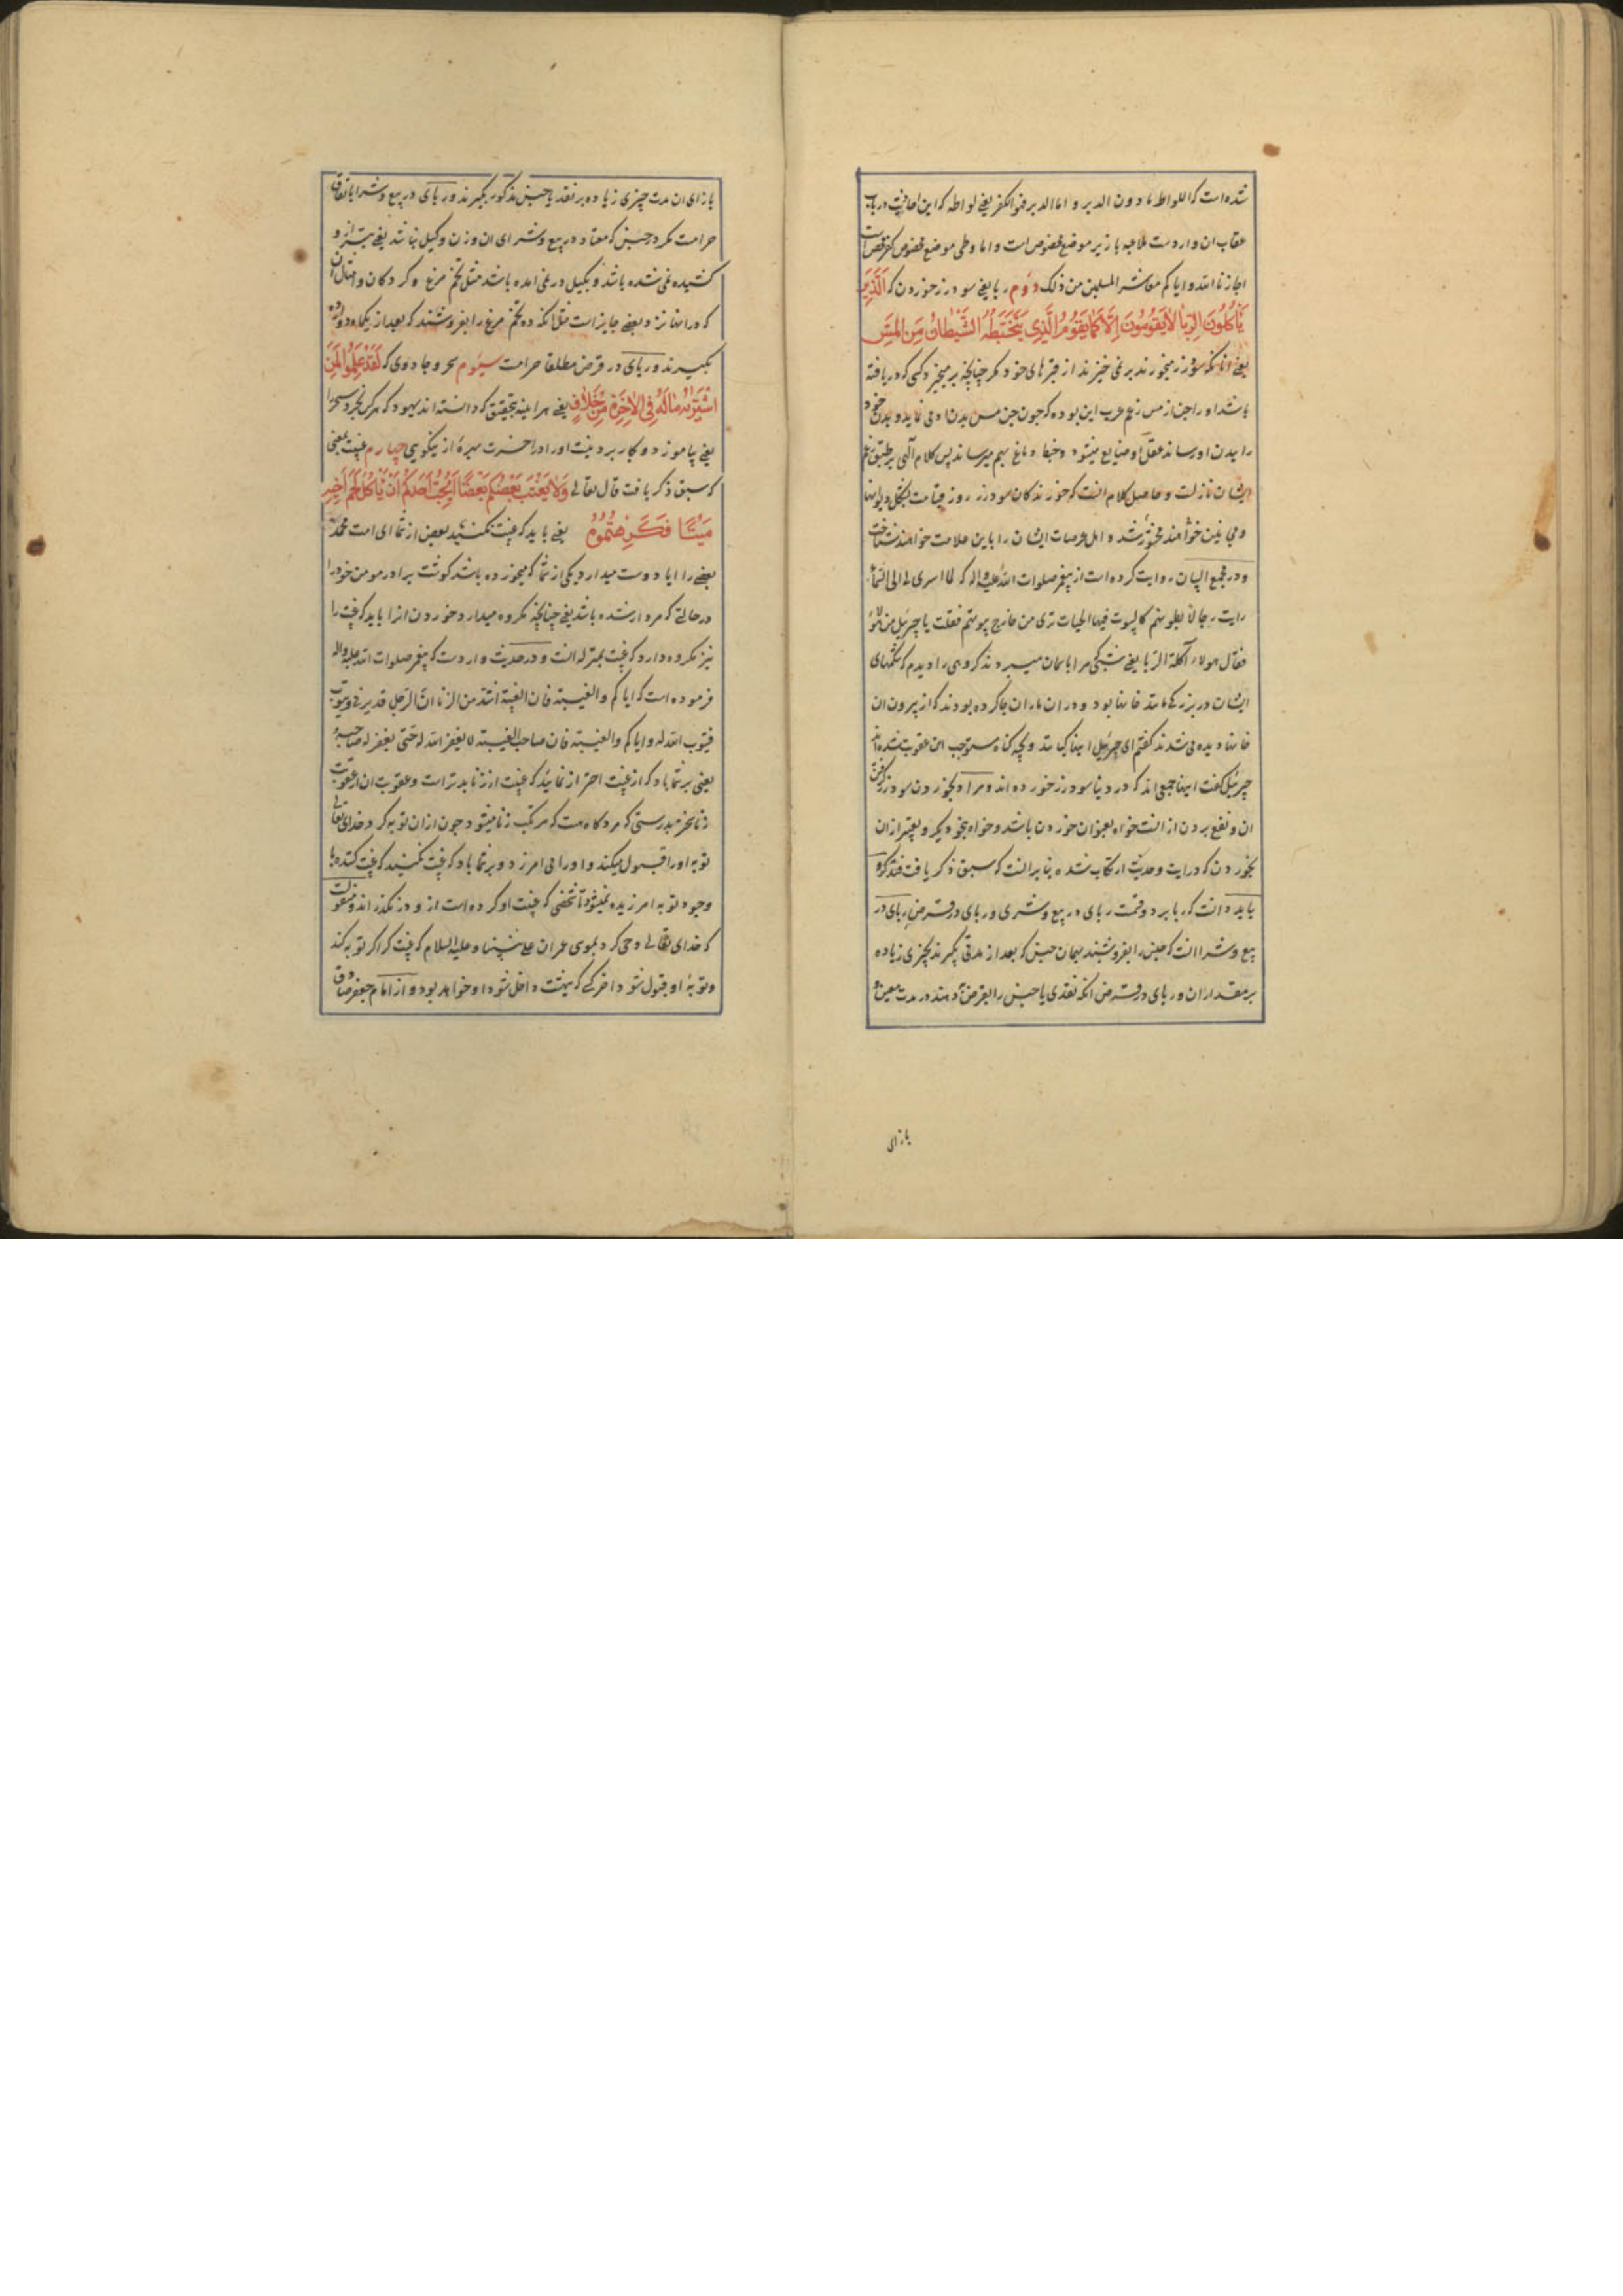 شده است که اللواط مادون الدبر و اما الدبر فهو الکفر یعنی لواطه که این احادیث در باب
عقاب ان واردست ملاعبه با زیر موضع مخصوص است و اما وطی موضع مخصوص کفر محض است
اجازنا الله و ایاکم معاشر المسلمین من ذلک دوم ربا یعنی سود زر خوردن که الَّذِینَ
یَأْکُلُونَ الرِّبٰا لاٰیَقُومُونَ اِلَّا کَمٰا یَقُومُ الَّذِی یَتَخَبَّطُهُ الشَّیْطٰانُ مِنَ الْمَسِّ
یعنی انانکه سود زر میخورند بر نمی خیزند از قبرهای خود مکر چنانچه بر میخیزد کسی که دریافته
باشد او را جن از مس زعم عرب این بوده که چون جن مس بدن ادمی نماید و بدن خود
را ببدن او رساند عقل او ضایع میشود و خبط دماغ بهم میرساند پس کلام الهی بر طبق زعم
ایشان نازلست و حاصل کلام اینست که خورندکان سود زر روز قیامت بشکل دیوانها
و مجانین خواهند محشور شد و اهل عرصات ایشان را باین علامت خواهند شناخت
و در مجمع البیان روایت کرده است از پیغمبر صلوات الله علیه و اله که لما اسری بی الی السماء
رایت رجالا بطونهم کالبیوت فیها الحیات تری من خارج بیوتهم فقلت یا جبرئیل من هؤلاء
فقال هولاء آکلة الربا یعنی شبی که مرا باسمان میبردند کروهی را دیدم که شکمهای
ایشان در بزرکی مانند خانها بود و در ان ماران جا کرده بودند که از بیرون ان
خانها دیده می شدند کفتم ای جبرئیل اینها کیانند و بچه کناه مستوجب این عقوبت شده اند
جبرئیل کفت اینها جمعی اند که در دنیا سود زر خورده اند و مراد بخوردن سود زر کرفتن
ان و نفع بردن از انست خواه بعنوان خوردن باشد و خواه بنحو دیکر و تعبیر از ان
بخوردن که در ایت و حدیث ارتکاب شده بنابر انست که سبق ذکر یافت فتذکره
باید دانست که ربا بر دو قسمت ربای در بیع و شری و ربای در قرض ربای در
بیع و شرا انست که جنس را بفروشند بهمان جنس که بعد از مدتی بکیرند بچیزی زیاده
بر مقدار ان و ربای در قرض انکه نقدی یا جنس را بقرض دهند در مدت معین و
بازای
بازای ان مدت چیزی زیاده بر نقد یا جنس مذکور بکیرند و ربای در بیع و شرا باتفاق
حرامست مکر در جنس که معتاد در بیع و شرای ان وزن و کیل نباشد یعنی بترازو
کشیده نمی شده باشد و بکیل در نمی امده باشد مثل تخم مرغ و کردکان و امثال ان
که در انها نزد بعضی جایز است مثل انکه ده تخم مرغ را بفروشند که بعد از یکماه دوازده
بکیرند و ربای در قرض مطلقا حرامست سیوم سحر و جادوی که لَقَدْ عَلِمُوا لَمَنِ
اشْتَرٰیهُ مٰالَهُ فِی الْاٰخِرَةِ مِنْ خَلاٰقٍ یعنی هر اینه بتحقیق که دانسته اند یهود که هر کس بخرد سحر را
یعنی بیاموزد و بکار برد نیست او را در اخرت بهرهٔ از نیکویی چهارم غیبت بمعنی
که سبق ذکر یافت قال تعالی وَلاٰ یَغْتَبْ بَعْضُکُمْ بَعْضًا اَیُحِبُّ اَحَدُکُمْ اَنْ یَأْکُلَ لَحْمَ اَخِیهِ
مَیْتًا فَکَرِهْتُمُوهُ یعنی باید که غیبت نکنید بعضی از شما ای امت محمد
بعضی را ایا دوست میدارد یکی از شما که میخورده باشد کوشت برادر مومن خود را
در حالتی که مردار شده باشد یعنی چنانچه مکروه میدارد خوردن انرا باید که غیبت را
نیز مکروه دارد که غیبت بمنزله انست و در حدیث واردست که پیغمبر صلوات الله علیه و اله
فرموده است که ایاکم و الغیبة فان الغیبة اشد من الزنا ان الرجل قد یزنی و یتوب
فیتوب الله له و ایاکم و الغیبة فان صاحب الغیبة لا یغفر الله له حتی یغفر له صاحبه
یعنی بر شما باد که از غیبت احتراز نمائید که غیبت از زنا بدتر است و عقوبت ان از عقوبت
زنا بیشتر بدرستی که مرد کاه هست که مرتکب زنا میشود چون از ان توبه کرد خدای تعالی
توبه او را قبول میکند و او را می امرزد و بر شما باد که غیبت نکنید که غیبت کننده با
وجود توبه امرزیده نمیشود تا شخصی که غیبت او کرده است از و در نکذرانند و منقولست
که خدای تعالی وحی کرد بموسی عمران علی نبینا و علیه السلام که غیبت کر اکر توبه کند
و توبهٔ او قبول شود اخر کسی که ببهشت داخل شود او خواهد بود و از امام جعفر صادق